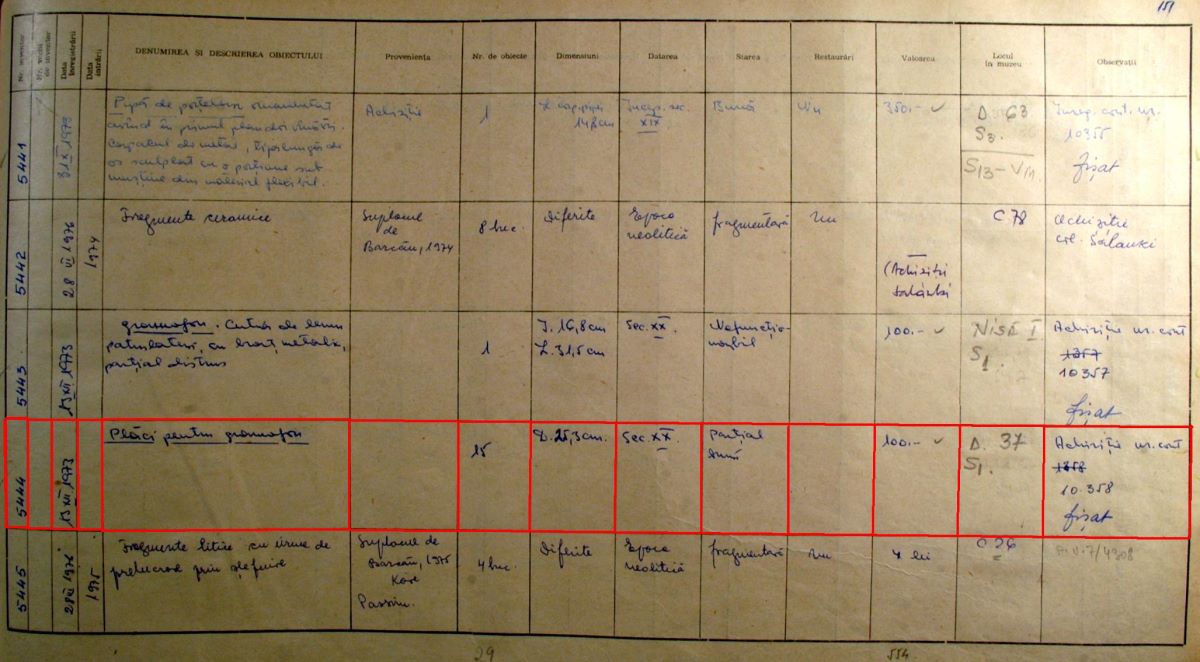 151
Nr. inventar
Data înregistrării
Data intrării
DENUMIREA ȘI DESCRIEREA OBIECTULUI
Proveniența
Nr. de obiecte
Dimensiuni
Datarea
Starea
Restaurări
Valoarea
Locul în muzeu
Observații
5441
31 X 1973
Pipă de porțelan ornamentat
având în primul plan doi
de metal, țiplungă de
os sculptat cu o porțiune sub
muștiuc din material flexibil.
Achiziție
1
14,8 cm
Încep. sec.
XIX
Bună
Nu
350.- ✓
D. 63
S3.
S13-VM.
Inreg. cont. nr.
10355
fișat
5442
28 VI 1976
1974
Fragmente ceramice
Suplacul
de
Barcău, 1974
8 buc.
Diferite
Epoca
neolitică
fragmentară
Nu
—
(Achiziți
C 78
Achiziție
col. Sălanki
5443
13 XII 1973
gramofon. Cutia de lemn
cu braț metalic,
parțial distrus
1
Î. 16,8 cm
L. 31,5 cm
Sec. XX.
Nefuncțio-
nabil
100.- ✓
Nisă I
S1.
Achiziție nr. cont
1357
10357
fișat
5444
13 XII 1973
Plăci pentru gramofon
15
D. 25,3 cm.
Sec. XX.
Parțial
bună
100.- ✓
D. 37
S1.
Achiziție nr. cont
1358
10.358
fișat
5445
28 VI 1976
1975
Fragmente litice cu urme de
prelucrare prin șlefuire
Suplacul de
Barcău, 1975
4 buc.
Diferite
Epoca
neolitică
fragmentară
Nu
4 lei
C 26
P.V. 7/4308
29
554